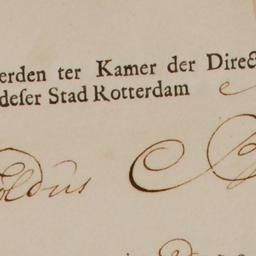 erden ter Kamer der Direc
deſer Stad Rotterdam
oldus C